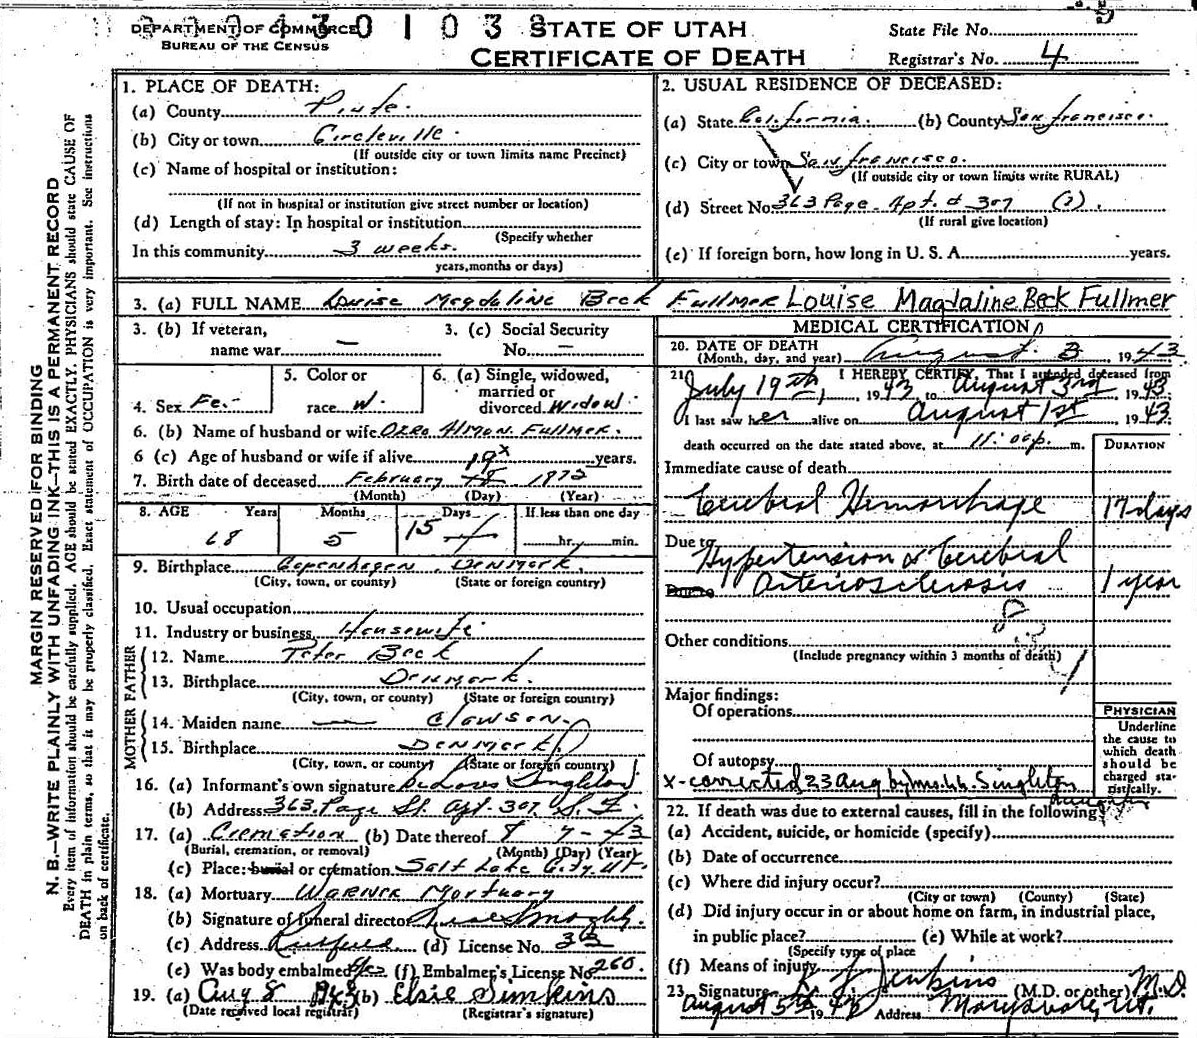 DEPARTMENT OF COMMERCE
BUREAU OF THE CENSUS
STATE OF UTAH
CERTIFICATE OF DEATH
State File No.
Registrar's No. 4
MARGIN RESERVED FOR BINDING
N. B.—WRITE PLAINLY WITH UNFADING INK—THIS IS A PERMANENT RECORD
Every item of information should be carefully supplied. AGE should be stated EXACTLY. PHYSICIANS should state CAUSE OF
DEATH in plain terms, so that it may be properly classified. Exact statement of OCCUPATION is very important. See instructions
on back of certificate.
1. PLACE OF DEATH:
(a) County Piute.
(b) City or town Circleville.
(If outside city or town limits name Precinct)
(c) Name of hospital or institution:
(If not in hospital or institution give street number or location)
(d) Length of stay: In hospital or institution
(Specify whether
In this community 3 weeks.
years, months or days)
2. USUAL RESIDENCE OF DECEASED:
(a) State California (b) County San Francisco.
(c) City or town San Francisco.
(If outside city or town limits write RURAL)
(d) Street No. 363 Page - Apt. # 307 (2).
(If rural give location)
(e) If foreign born, how long in U. S. A. years.
3. (a) FULL NAME Louise Magdaline Beck Fullmer Louise Magdaline Beck Fullmer
3. (b) If veteran,
name war —
3. (c) Social Security
No. —
4. Sex Fe.
5. Color or
race W.
6. (a) Single, widowed,
married or
divorced Widow
6. (b) Name of husband or wife Ozro Almon Fullmer.
6 (c) Age of husband or wife if alive years.
19x
7. Birth date of deceased February 18 1875
(Month) (Day) (Year)
8. AGE Years Months Days If less than one day
68 5 15 hr. min.
9. Birthplace Copenhagen Denmark.
(City, town, or county) (State or foreign country)
10. Usual occupation
11. Industry or business Housewife
FATHER
12. Name Peter Beck
13. Birthplace Denmark.
(City, town, or county) (State or foreign country)
MOTHER
14. Maiden name — Clawson.
15. Birthplace Denmark
(City, town, or county) (State or foreign country)
16. (a) Informant's own signature Singleton
(b) Address 363 Page St. Apt. 307. S. F.
17. (a) Cremation (b) Date thereof 8 7-43
(Burial, cremation, or removal) (Month) (Day) (Year)
(c) Place: burial or cremation Salt Lake City, Ut.
18. (a) Mortuary Warnick Mortuary
(b) Signature of funeral director
(c) Address (d) License No. 313
(e) Was body embalmed Yes (f) Embalmer's License No. 260.
19. (a) Aug 8 1943 (b) Elsie Simkins
(Date received local registrar) (Registrar's signature)
MEDICAL CERTIFICATION
20. DATE OF DEATH
(Month, day, and year) August 3, 1943
21. I HEREBY CERTIFY, That I attended deceased from
July 19th, 1943 to August 3rd 1943
I last saw her alive on August 1st, 1943
death occurred on the date stated above, at 11:00p. m.
DURATION
Immediate cause of death
Cerebral Hemorrhage 17 days
Due to Hypertension & Cerebral
Arteriosclerosis 1 year
Other conditions
(Include pregnancy within 3 months of death)
Major findings:
Of operations
Of autopsy
PHYSICIAN
Underline
the cause to
which death
should be
charged sta-
tistically.
x-corrected 23 Aug by Mrs. Singleton
daughter
22. If death was due to external causes, fill in the following:
(a) Accident, suicide, or homicide (specify)
(b) Date of occurrence
(c) Where did injury occur?
(City or town) (County) (State)
(d) Did injury occur in or about home on farm, in industrial place,
in public place? (e) While at work?
(Specify type of place
(f) Means of injury
23. Signature Jenkins (M.D. or other) M.D.
August 5th 1943 Address Marysvale, Ut.